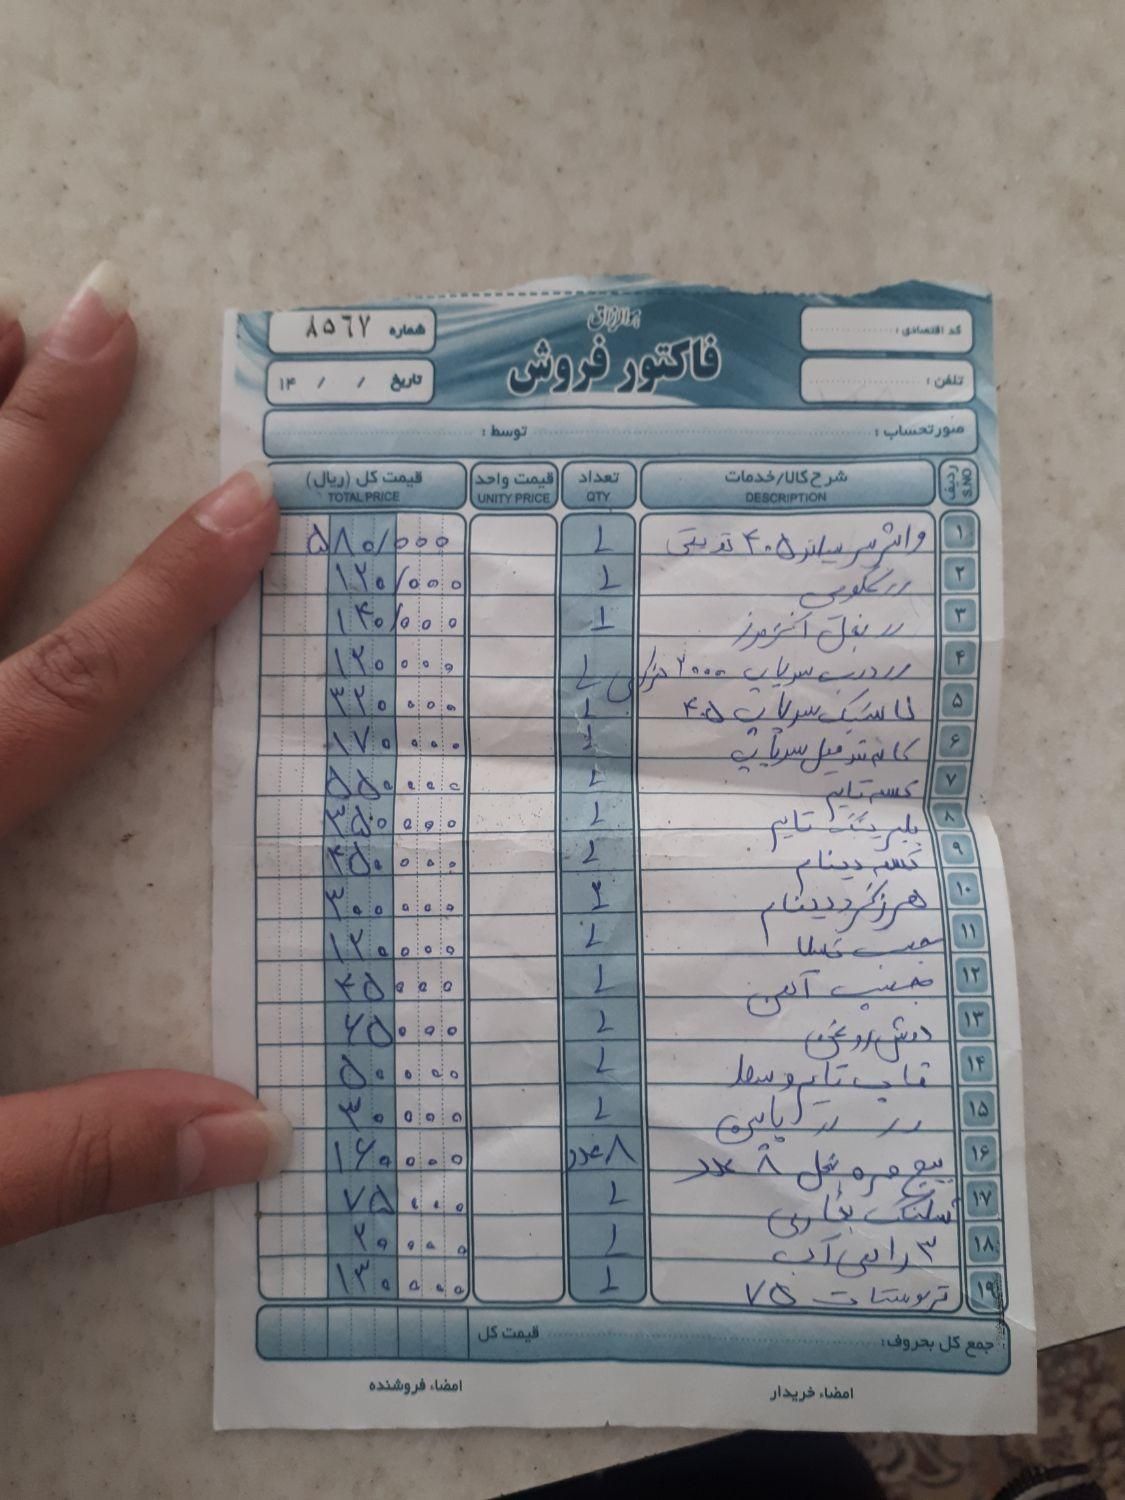 هوالرزاق
فاکتور فروش
کد اقتصادی:
شماره ۸۵۶۷
تلفن:
تاریخ / / ۱۴
صورتحساب: توسط:
ردیف شرح کالا/خدمات تعداد قیمت واحد قیمت کل (ریال)
S.NO DESCRIPTION QTY UNITY PRICE TOTAL PRICE
۱ واشر سر سیلندر ۴۰۵ ۱ ۵۸۰/۰۰۰
۲ ۱ ۱۲۰/۰۰۰
۳ 〃 بغل اگزوز ۱ ۱۴۰/۰۰۰
۴ 〃 درب سوپاپ ۲۰۰۰ ۱ ۱۲۰۰۰۰
۵ لاستیک سوپاپ ۴۰۵ ۱ ۳۲۰۰۰۰
۶ سوپاپ ۱ ۱۷۰۰۰۰
۷ تسمه تایم ۱ ۵۵۰۰۰۰
۸ بلبرینگ تایم ۱ ۳۵۰۰۰۰
۹ تسمه دینام ۱ ۲۵۰۰۰۰
۱۰ هرزگرد دینام ۱ ۳۰۰۰۰۰
۱۱ چسب ۱ ۱۲۰۰۰۰
۱۲ چسب آهن ۱ ۲۵۰۰۰
۱۳ ۱ ۶۵۰۰۰
۱۴ قاب تایم وسط ۱ ۵۰۰۰۰
۱۵ 〃 〃 پایین ۱ ۴۰۰۰۰
۱۶ پیچ ۸ عدد ۸ عدد ۱۶۰۰۰۰
۱۷ شلنگ بخاری ۱ ۷۵۰۰۰
۱۸ ۳ راهی آب ۱ ۲۰۰۰۰
۱۹ ترموستات ۷۵ ۱ ۱۳۰۰۰۰
جمع کل بحروف: قیمت کل
امضاء خریدار امضاء فروشنده